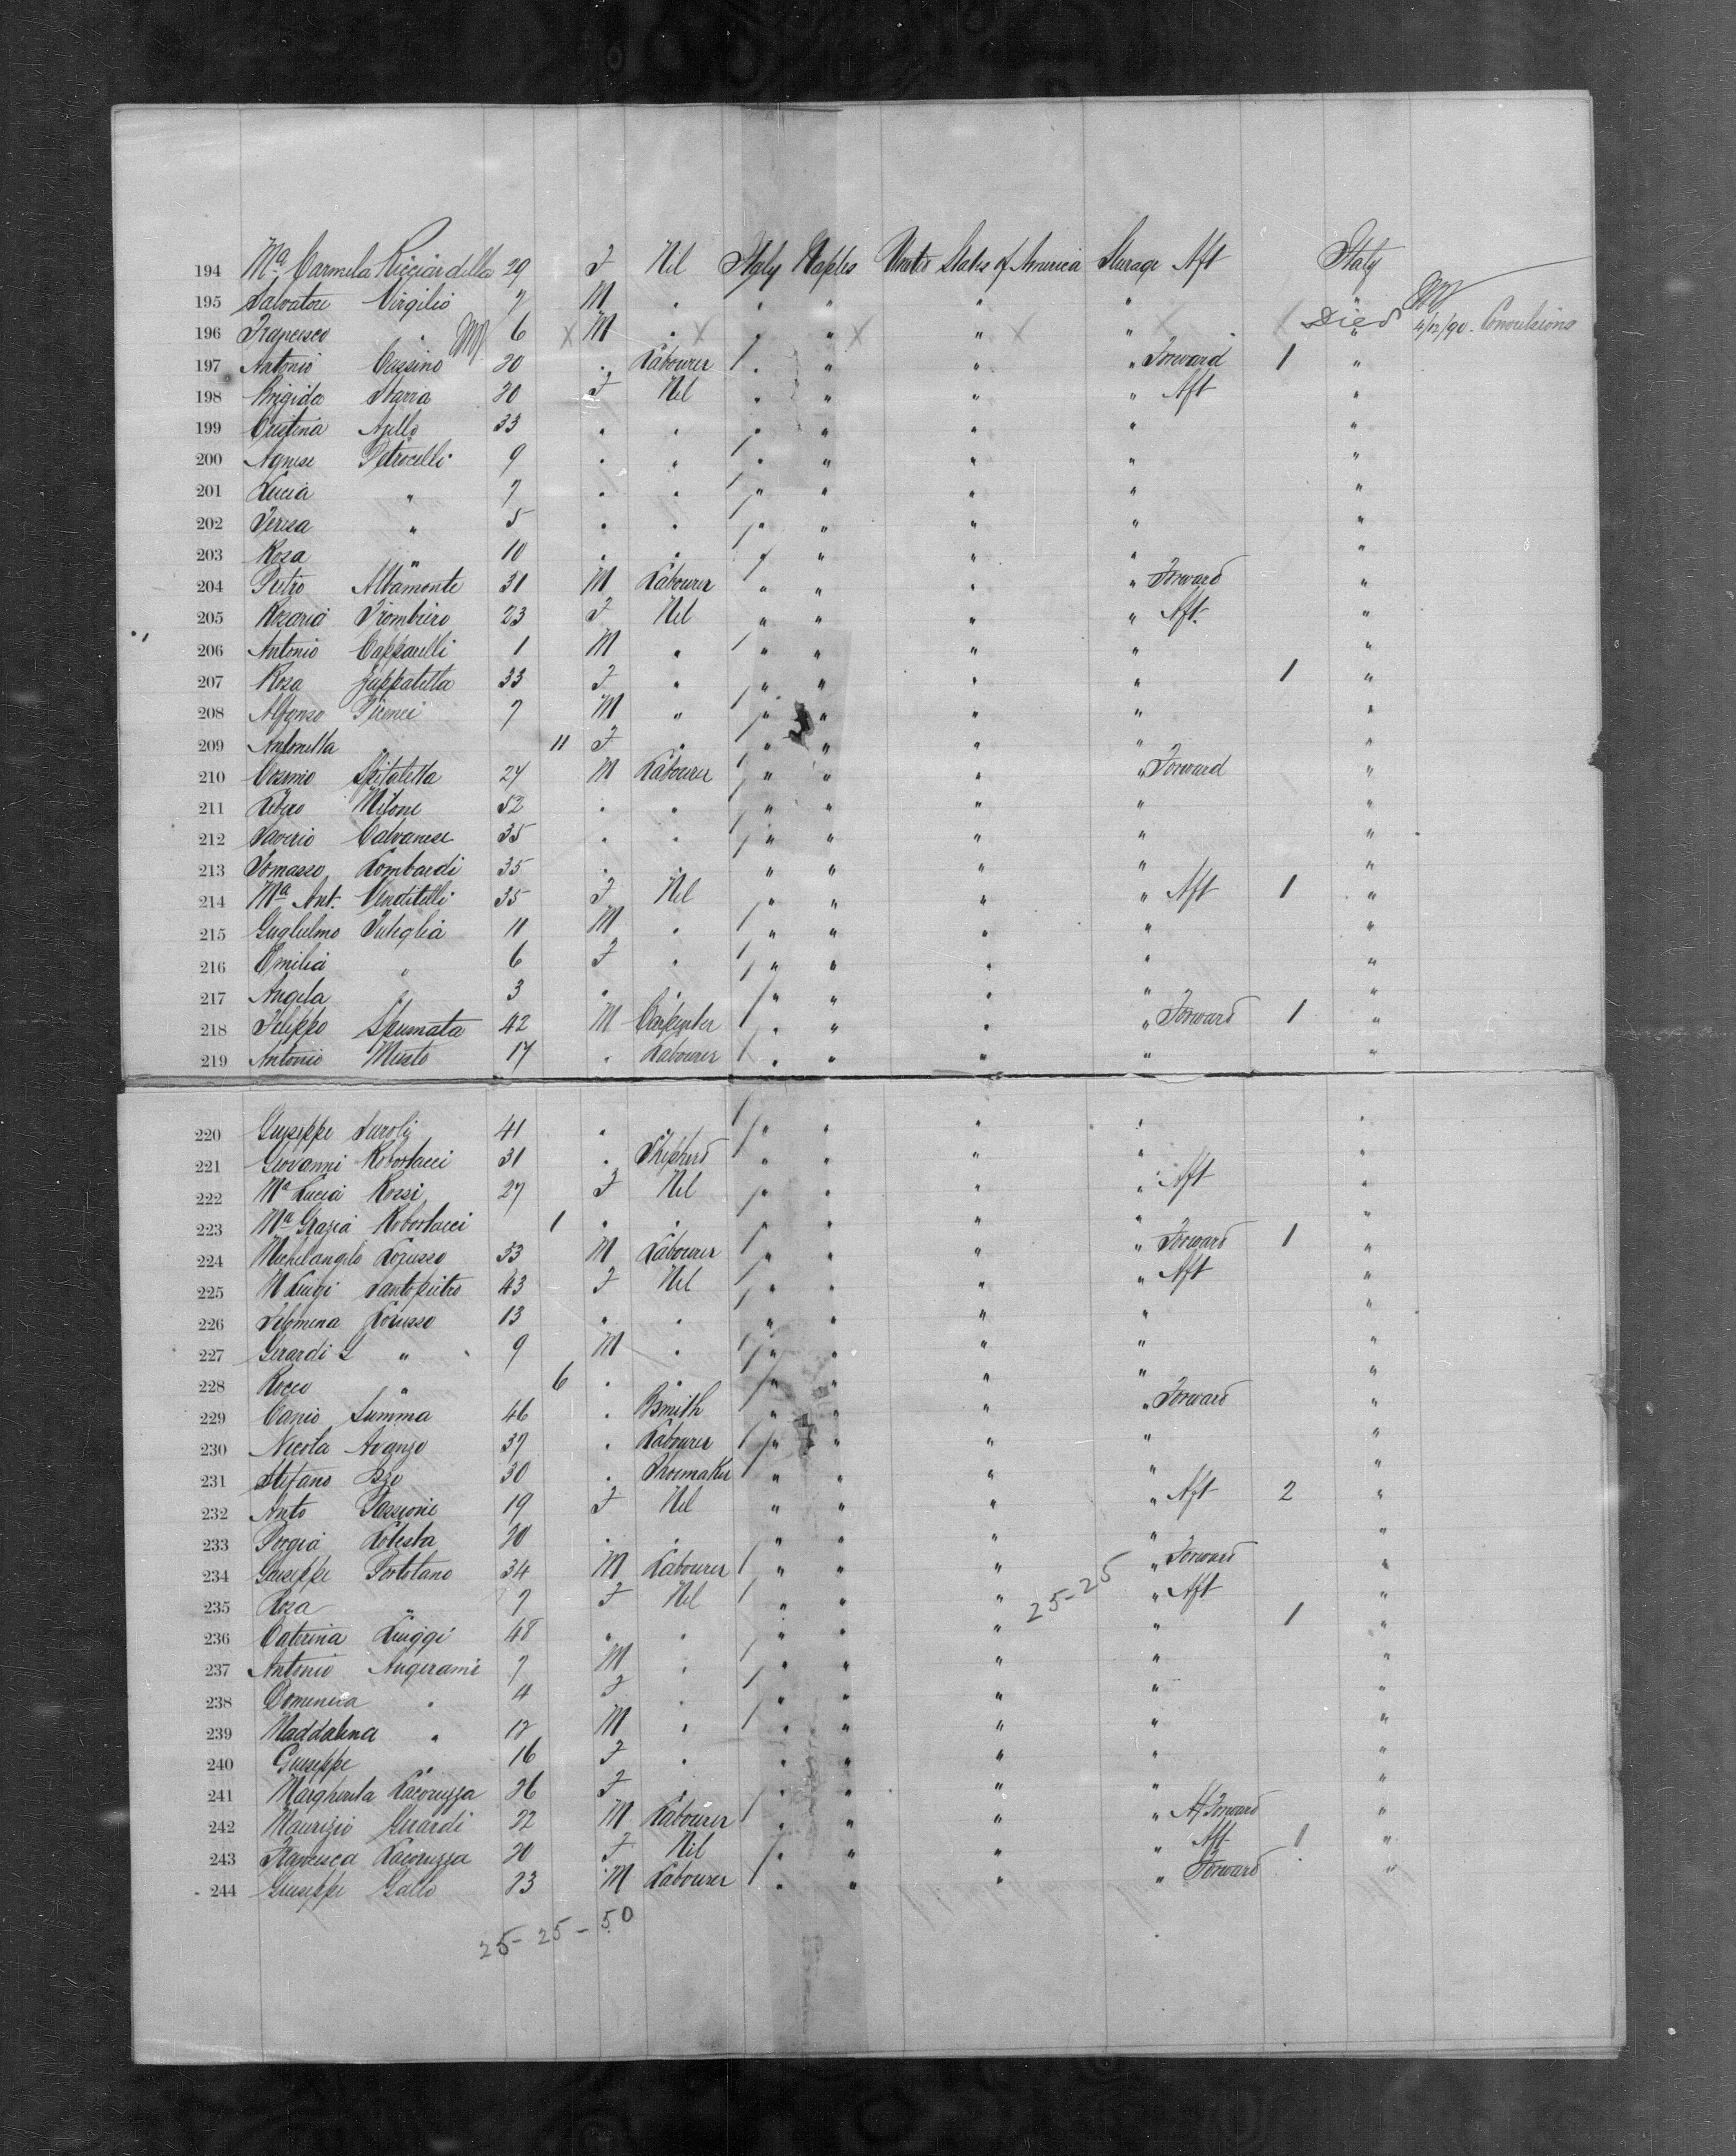 194 Mª Carmela Ricciardella 29 F Nil Italy Naples United States of America Steerage Aft Italy
195 Salvatore Virgilio 7 M " " " " " "
196 Francesco " 6 M " " " " " Died " 4/12/90. Convulsions
197 Antonio Cassino 20 " Labourer " " " " Forward 1 "
198 Brigida Sarra 20 F Nil " " " " Aft "
199 Cristina Ajello 33 " " " " " " "
200 Agnese Petrocelli 9 " " " " " " "
201 Lucia " 7 " " " " " " "
202 Teresa " 5 " " " " " " "
203 Rosa " 10 " " " " " " "
204 Pietro Altamonte 31 M Labourer " " " " Forward "
205 Rosaria Trombiero 23 F Nil " " " " Aft. "
206 Antonio Capparelli 1 M " " " " " "
207 Rosa Zuppatella 33 F " " " " " 1 "
208 Alfonso 7 M " " " " " "
209 Antonetta 11 F " " " " " "
210 Cosimo Spitaletta 24 M Labourer " " " " Forward "
211 Milone 52 " " " " " " "
212 Saverio Calvanese 35 " " " " " " "
213 Tomasso Lombardi 35 " " " " " " "
214 Mª Ant. Venditelli 35 F Nil " " " " Aft 1 "
215 Guglielmo 11 M " " " " " "
216 Emilia " 6 F " " " " " "
217 Angela " 3 " " " " " " "
218 Filippo Spumata 42 M Carpenter " " " " Forward 1 "
219 Antonio Miato 17 " Labourer " " " " "
220 Giuseppe 41 " " " " " "
221 Giovanni Robortacci 31 " Shepherd " " " " "
222 Mª Lucia Rossi 27 F Nil " " " " Aft "
223 Mª Grazia Robortacci 1 " " " " " " "
224 Michelangelo Lorusso 33 M Labourer " " " " Forward 1 "
225 M Luigi Santopietro 43 F Nil " " " " Aft "
226 Filomena Lorusso 13 " " " " " " "
227 Gerardi G " 9 M " " " " " "
228 Rocco " 6 " " " " " " "
229 Canio Summa 46 " Bsmith " " " " Forward "
230 Nicola Avanzo 37 " Labourer " " " " "
231 Stefano 30 " Shoemaker " " " " "
232 Anto Passione 19 F Nil " " " " Aft 2 "
233 Porzia Lotesta 20 " " " " " " "
234 Giuseppe Tortolano 34 M Labourer " " " " Forward "
235 Rosa " 7 F Nil " " " 25-25 " Aft "
236 Caterina Luiggi 48 " " " " " " 1 "
237 Antonio Angerami 7 M " " " " " "
238 Domenica " 4 F " " " " " "
239 Maddalena " 12 M " " " " " "
240 Giuseppe " 16 F " " " " " "
241 Margherita Lacoruzza 26 F " " " " " "
242 Maurizio Gerardi 22 M Labourer " " " " Forward "
243 Francesca Lacoruzza 20 F Nil " " " " Aft 1 "
244 Giuseppe Gallo 23 M Labourer " " " " Forward "
25-25-50